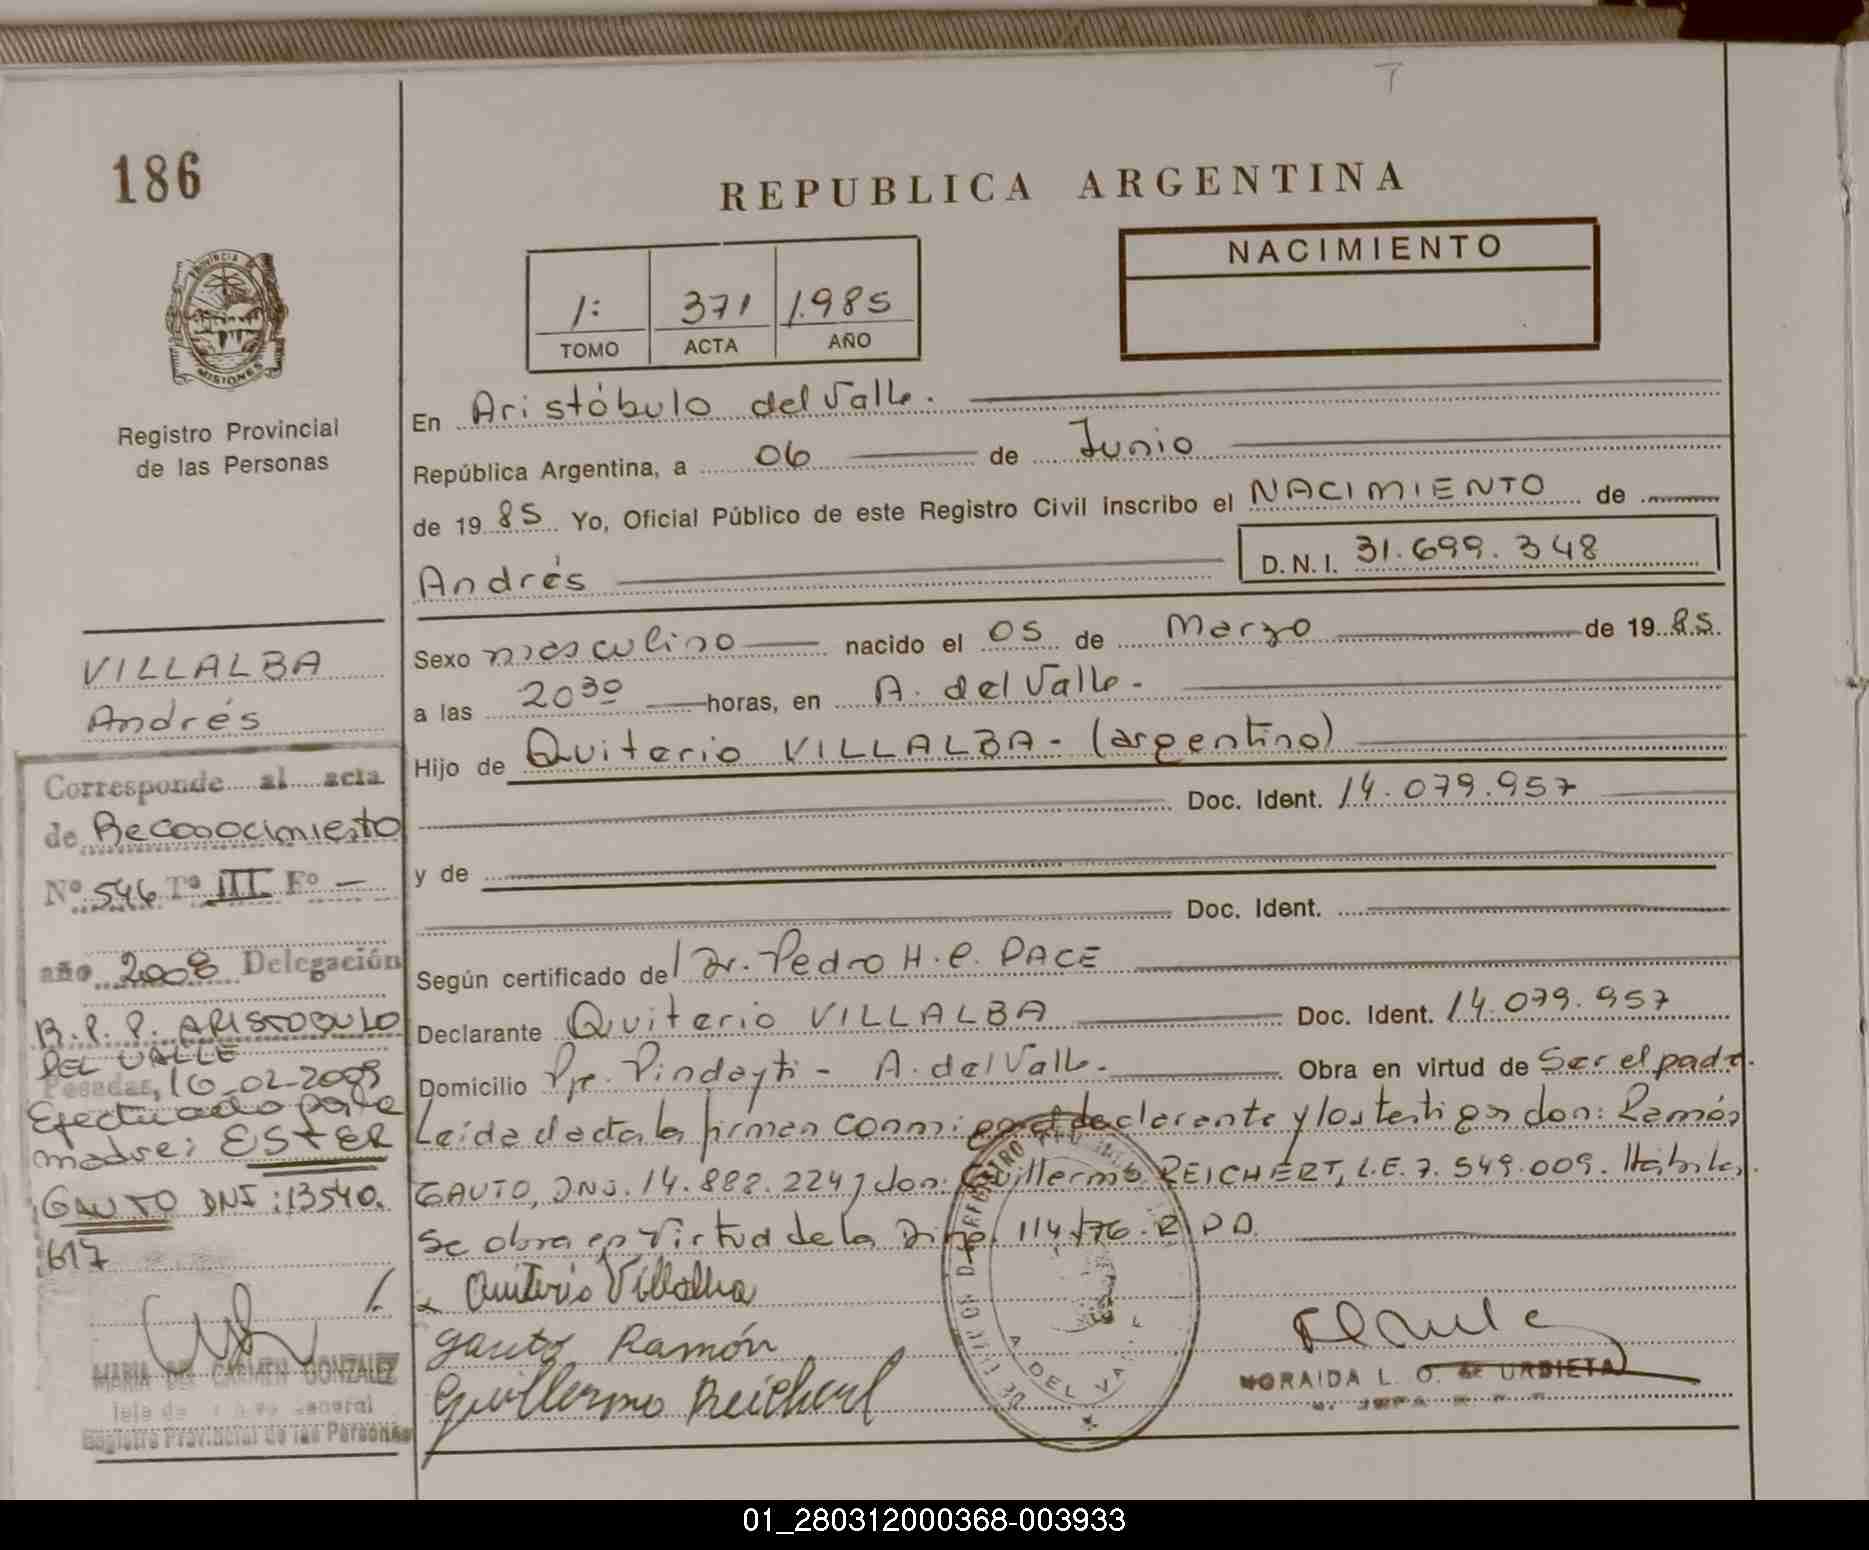 7
186
REPUBLICA ARGENTINA
NACIMIENTO
1: 371 1.985
TOMO ACTA AÑO
PROVINCIA DE
MISIONES
Registro Provincial
de las Personas
En Aristóbulo del Valle.
República Argentina, a 06 de Junio
de 1985 Yo, Oficial Público de este Registro Civil inscribo el NACIMIENTO de
Andrés D.N.I. 31.699.348
Sexo masculino nacido el 05 de Marzo de 1985.
a las 20 30 horas, en A. del Valle.
Hijo de Quiterio VILLALBA - (argentino)
Doc. Ident. 14.079.957
y de
Doc. Ident.
Según certificado del Dr. Pedro H. C. PACE
Declarante Quiterio VILLALBA Doc. Ident. 14.079.957
Domicilio Pje. Pindayti - A. del Valle. Obra en virtud de Ser el padre.
Leída el acta la firman conmigo el declarante y los testigos don: Ramón
GAUTO, DNI. 14.888.224 y don: Guillermo REICHERT, L.E. 7.549.009. Hábiles.
Se obra en Virtud de la Disp. 114/76. R.P.P.
Quiterio Villalba
Gauto Ramón
Guillermo Reichert
A. DEL VALLE
NORAIDA L. O. de URBIETA
VILLALBA
Andrés
Corresponde al acta
de Reconocimiento
Nº 546 Tº III Fº -
año 2008 Delegación
R.P.P. ARISTOBULO
DEL VALLE
Posadas, 16-02-2009
Efectuado por la
madre: ESTER
GAUTO DNI: 13540.
617
MARIA DEL CARMEN GONZALEZ
Registro Provincial de las Personas
01_280312000368-003933